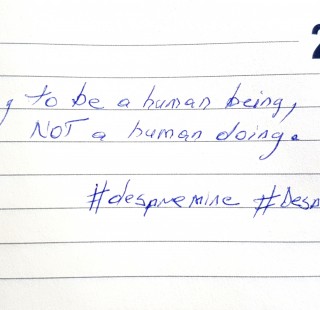 2
to be a human being,
NOT a human doing.
#despremine #Desp